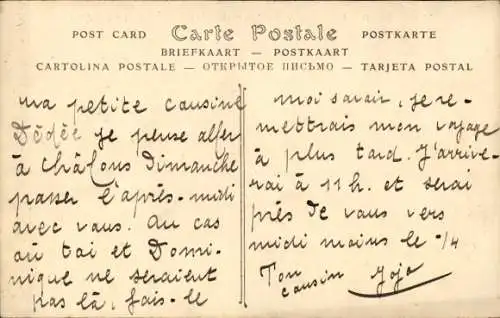 POST CARD
Carte Postale
POSTKARTE
BRIEFKAART — POSTKAART
CARTOLINA POSTALE — ОТКРЫТОЕ ПИСЬМО — TARJETA POSTAL
ma petite cousine
Dédée je pense aller
à châlons dimanche
passer l'après-midi
avec vous. Au cas
où toi et Domi-
nique ne seraient
pas là, fais-le
moi savoir, je re-
mettrais mon voyage
à plus tard. J'arrive-
rai à 11 h. et serai
près de vous vers
midi moins le 1/4
Ton
cousin Jojo